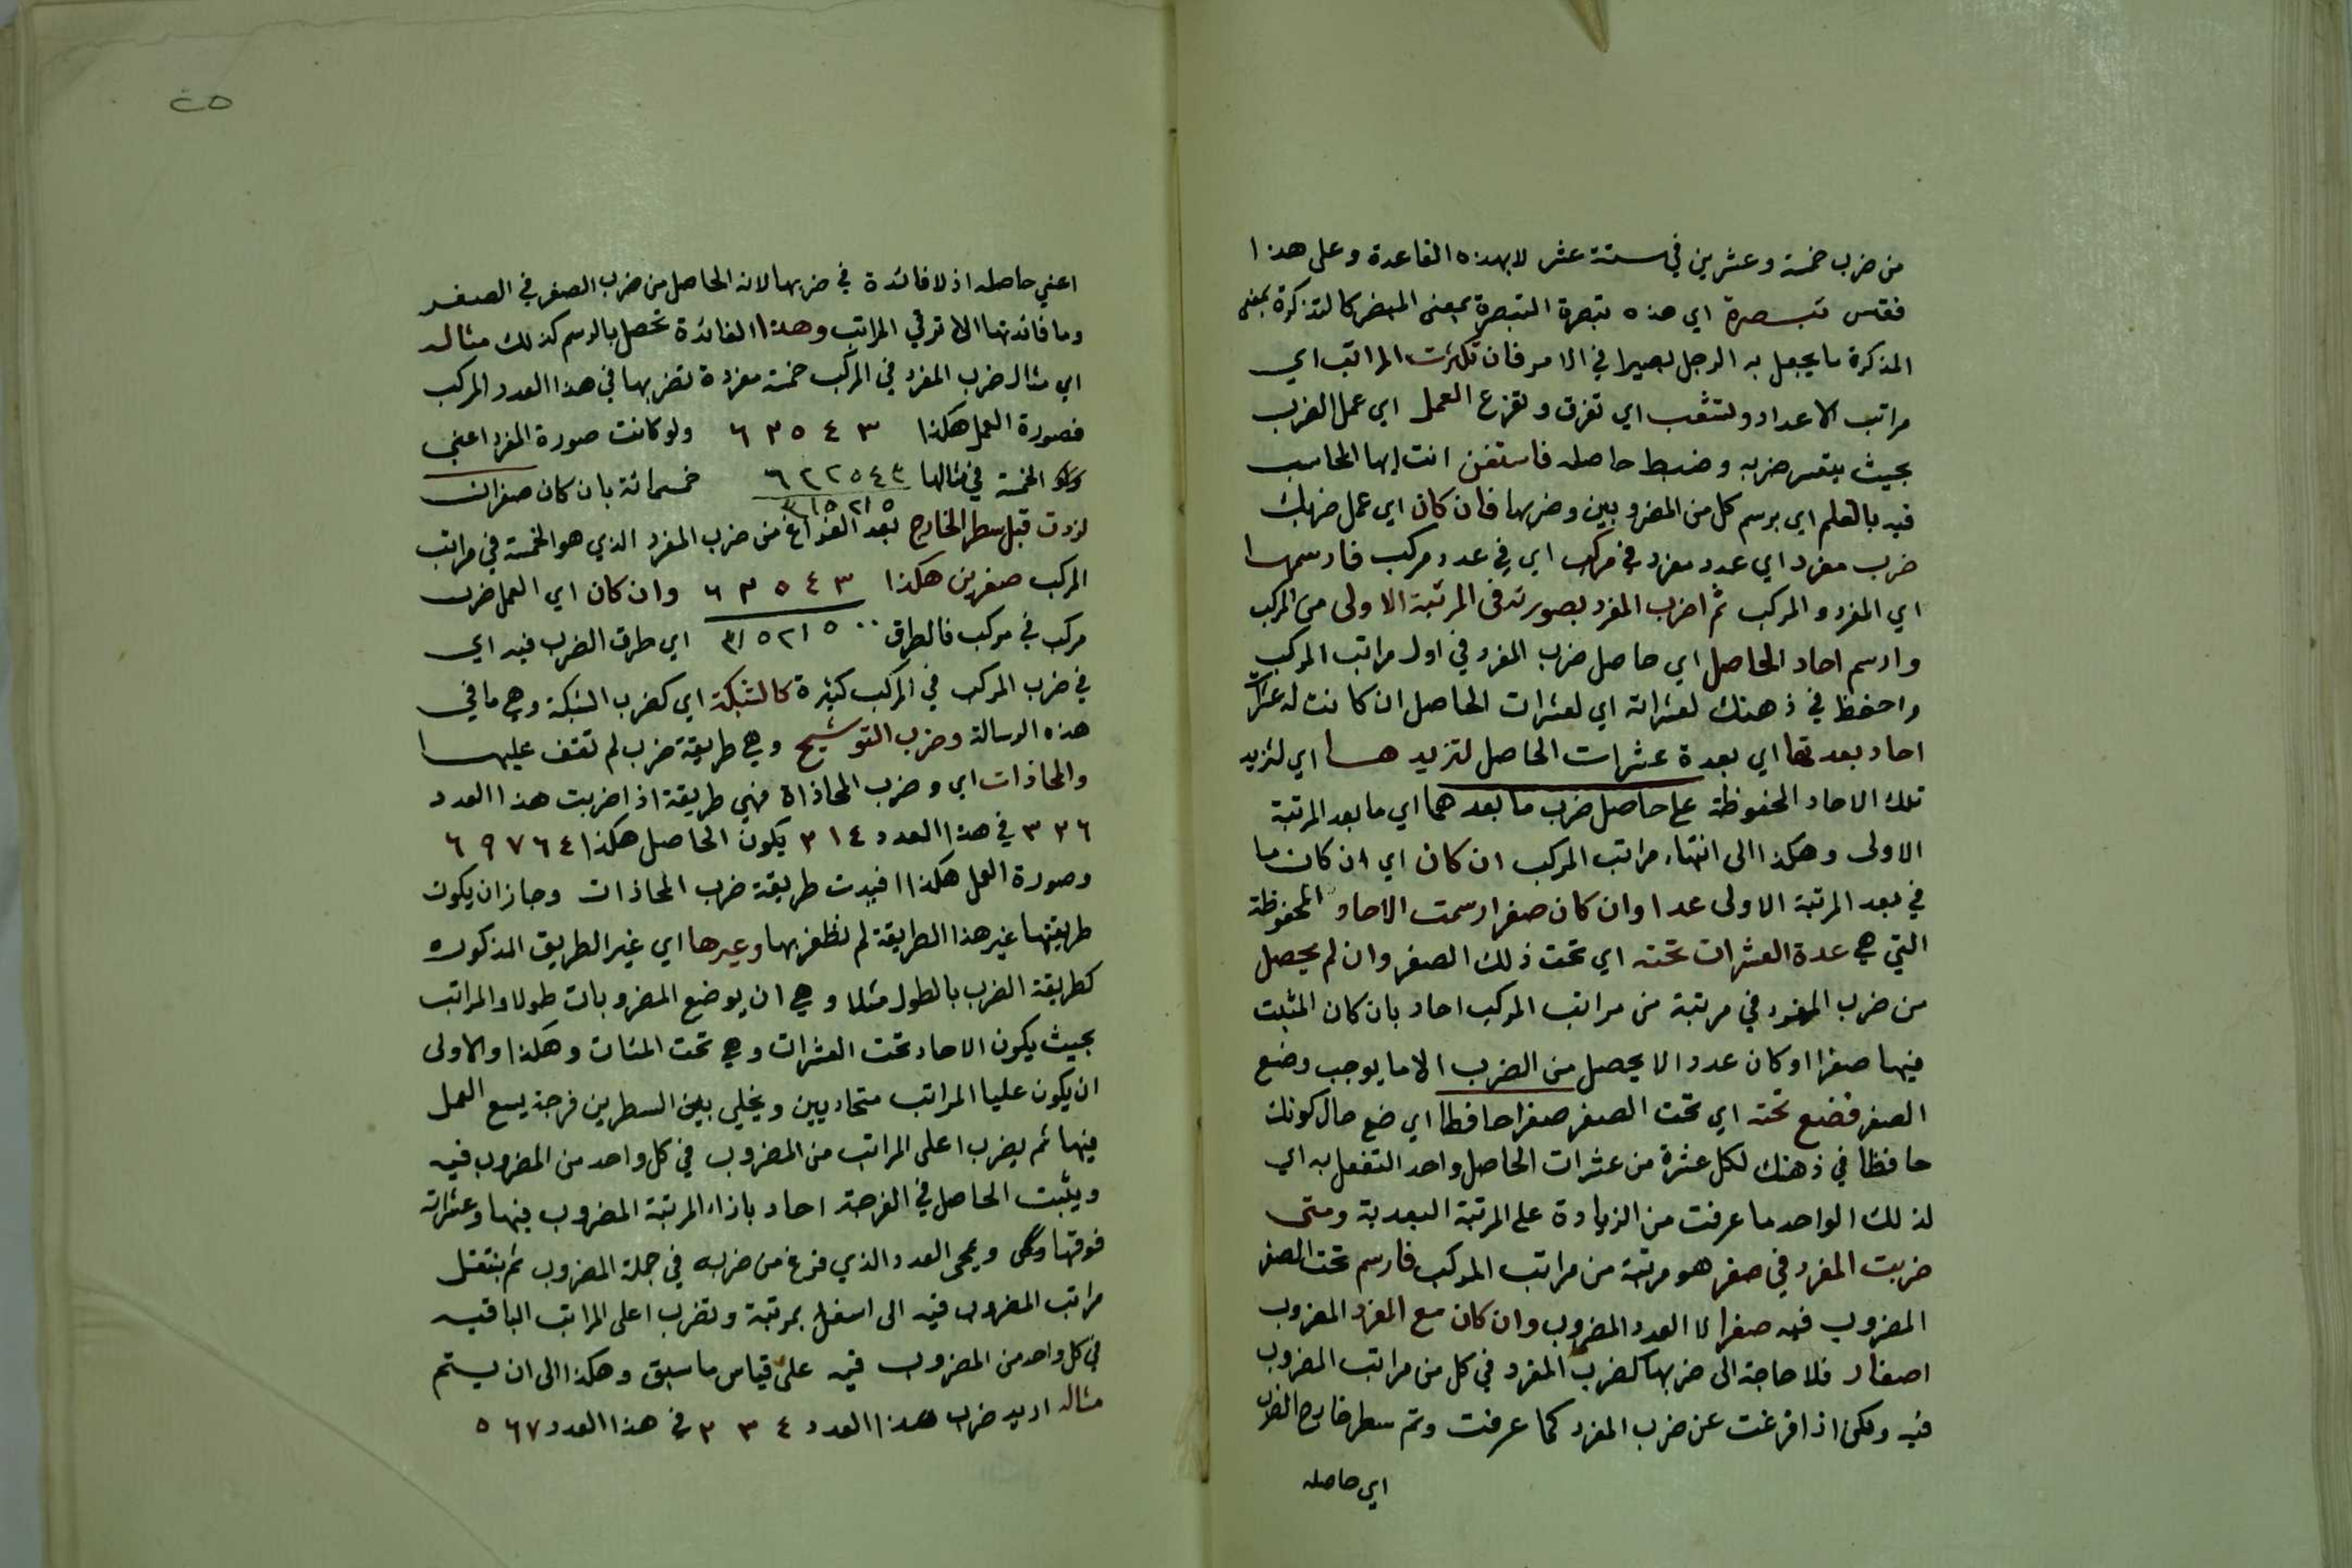 من ضرب خمسة وعشرين في ستة عشر لا بهذه القاعدة وعلى هذا
فقس تبصرة اي هذه تبصرة التبصرة بمعنى المبصر كالتذكرة بمعنى
المذكرة ما يجعل به الرجل بصيرا في الامر فان تكثرت المراتب اي
مراتب الاعداد وتشعب اي تفرق وتفرع العمل اي عمل الضرب
بحيث يتعسر ضربه وضبط حاصله فاستعن انت ايها المحاسب
فيه بالقلم اي برسم كل من المضروبين وضربها فان كان اي عمل ضربك
ضرب مفرد اي عدد مفرد في مركب اي في عدد مركب فارسمهما
اي المفرد والمركب ثم اضرب المفرد بصورته في المرتبة الاولى من المركب
وارسم احاد الحاصل اي حاصل ضرب المفرد في اول مراتب المركب
واحفظ في ذهنك لعشراته اي لعشرات الحاصل ان كانت له عشرات
احاد بعدتها اي بعدة عشرات الحاصل لتزيدها اي لتزيد
تلك الاحاد المحفوظة على حاصل ضرب ما بعدهما اي ما بعد المرتبة
الاولى وهكذا الى انتهاء مراتب المركب ان كان اي ان كان ما
في بعد المرتبة الاولى عددا وان كان صفرا رسمت الاحاد المحفوظة
التي هي عدة العشرات تحته اي تحت ذلك الصفر وان لم يحصل
من ضرب المفرد في مرتبة من مراتب المركب احاد بان كان المثبت
فيها صفرا او كان عددا لا يحصل من الضرب الا ما يوجب وضع
الصفر فضع تحته اي تحت الصفر صفرا حافظا اي ضع حال كونك
حافظا في ذهنك لكل عشرة من عشرات الحاصل واحد التفعل به اي
لذلك الواحد ما عرفت من الزيادة على المرتبة البعدية ومتى
ضربت المفرد في صفر هو مرتبة من مراتب المركب فارسم تحت الصفر
المضروب فيه صفرا لا العدد المضروب وان كان مع المفرد المضروب
اصفار فلا حاجة الى ضربها كضرب المفرد في كل من مراتب المضروب
فيه ولكن اذا فرغت عن ضرب المفرد كما عرفت وتم سطر خارج الضرب
اي حاصله
٢٥
اعني حاصله اذ لا فائدة في ضربها لان الحاصل من ضرب الصفر في الصفر
وما فائدتها الا ترقي المراتب وهذا الفائدة تحصل بالرسم كذلك مثاله
اي مثال ضرب المفرد في المركب خمسة مفردة تضربها في هذا العدد المركب
فصورة العمل هكذا ٦ ٣ ٥ ٤ ٣ ولو كانت صورة المفرد اعني
الخمسة في مثالها خمسمائة بان كان صفران
لزدت قبل سطر الخارج بعد الفراغ من ضرب المفرد الذي هو الخمسة في مراتب
المركب صفرين هكذا ٦ ٣ ٥ ٤ ٣ وان كان اي العمل ضرب
مركب في مركب فالطرق ٣١٥٢١٥٠٠ اي طرق الضرب فيه اي
في ضرب المركب في المركب كثيرة كالشبكة اي كضرب الشبكة وهي ما في
هذه الرسالة وضرب التوشيح وهي طريقة ضرب لم تقف عليها
والمحاذات اي وضرب المحاذاة فهي طريقة اذا ضربت هذا العدد
٣٢٦ في هذا العدد ٢١٤ يكون الحاصل هكذا ٦٩٧٦٤
وصورة العمل هكذا افيدت طريقة ضرب المحاذات وجاز ان يكون
طريقتها غير هذا الطريقة لم نظفر بها وغيرها اي غير الطريق المذكورة
كطريقة الضرب بالطول مثلا وهي ان يوضع المضروبات طولا والمراتب
بحيث يكون الاحاد تحت العشرات وهي تحت المئات وهكذا والاولى
ان يكون عليا المراتب متحاذيين ويخلي بين السطرين فرجة يسع العمل
فيها ثم يضرب اعلى المراتب من المضروب في كل واحد من المضروب فيه
ويثبت الحاصل في الفرجة احاد بازاء المرتبة المضروب فيها وعشراته
فوقها ويمحى العدد الذي فرغ من ضربه في جملة المضروب ثم ينتقل
مراتب المضروب فيه الى اسفل بمرتبة وتضرب اعلى المراتب الباقية
في كل واحد من المضروب فيه على قياس ما سبق وهكذا الى ان يستتم
مثاله اريد ضرب هذا العدد ٢٣٤ في هذا العدد ٥٦٧